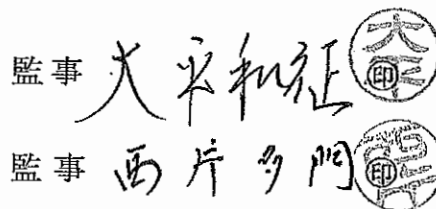 監事 大平和征 印
監事 西片多門 印